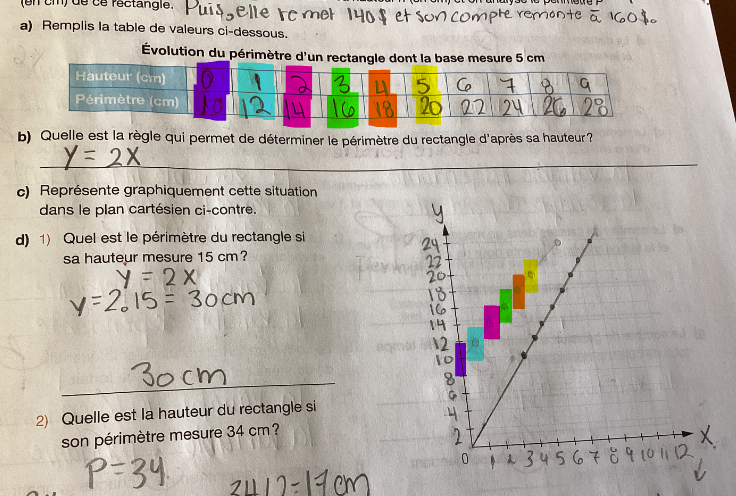 (en cm) de ce rectangle. Puis, elle remet 140$ et son compte remonte à 160$.
a) Remplis la table de valeurs ci-dessous.
Évolution du périmètre d'un rectangle dont la base mesure 5 cm
Hauteur (cm) 0 1 2 3 4 5 6 7 8 9
Périmètre (cm) 10 12 14 16 18 20 22 24 26 28
b) Quelle est la règle qui permet de déterminer le périmètre du rectangle d'après sa hauteur?
y = 2x
c) Représente graphiquement cette situation
dans le plan cartésien ci-contre.
d) 1) Quel est le périmètre du rectangle si
sa hauteur mesure 15 cm?
y = 2x
y = 2.15 = 30cm
30 cm
2) Quelle est la hauteur du rectangle si
son périmètre mesure 34 cm?
P = 34
34/2=17cm
y
24
22
20
18
16
14
12
10
8
6
4
2
0 1 2 3 4 5 6 7 8 9 10 11 12 x